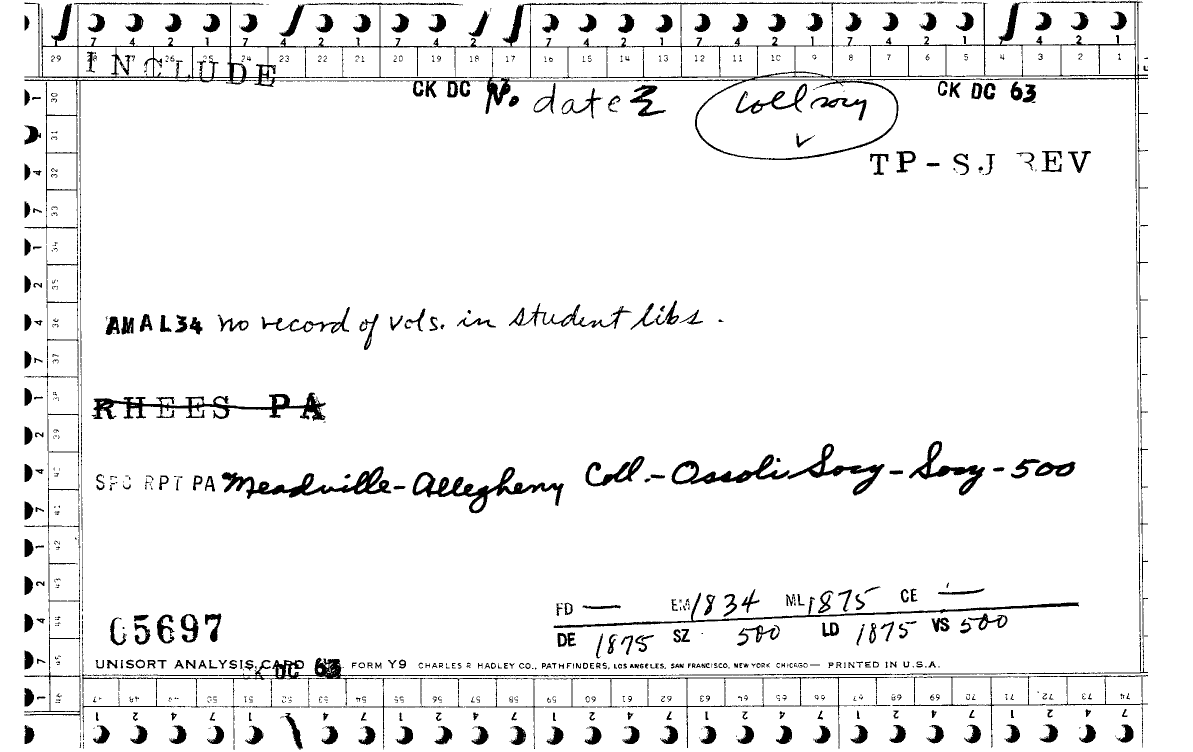 7 4 2 1 7 4 2 1 7 4 2 1 7 4 2 1 7 4 2 1 7 4 2 1 7 4 2 1
29 28 27 26 25 24 23 22 21 20 19 18 17 16 15 14 13 12 11 10 9 8 7 6 5 4 3 2 1
INCLUDE
CK DC 63 No date
Coll socy ✓
CK DC 63
TP-SJ REV
AMAL34 no record of vols. in student libs.
RHEES PA
SPC RPT PA Meadville-Allegheny Coll.-Ossoli Socy-Socy-500
FD — EM 1834 ML 1875 CE —
DE 1875 SZ 500 LD 1875 VS 500
05697
UNISORT ANALYSIS CARD FORM Y9 CHARLES R HADLEY CO., PATHFINDERS, LOS ANGELES, SAN FRANCISCO, NEW YORK CHICAGO— PRINTED IN U.S.A.
CK DC 63
47 48 49 50 51 52 53 54 55 56 57 58 59 60 61 62 63 64 65 66 67 68 69 70 71 72 73 74
1 2 4 7 1 2 4 7 1 2 4 7 1 2 4 7 1 2 4 7 1 2 4 7 1 2 4 7